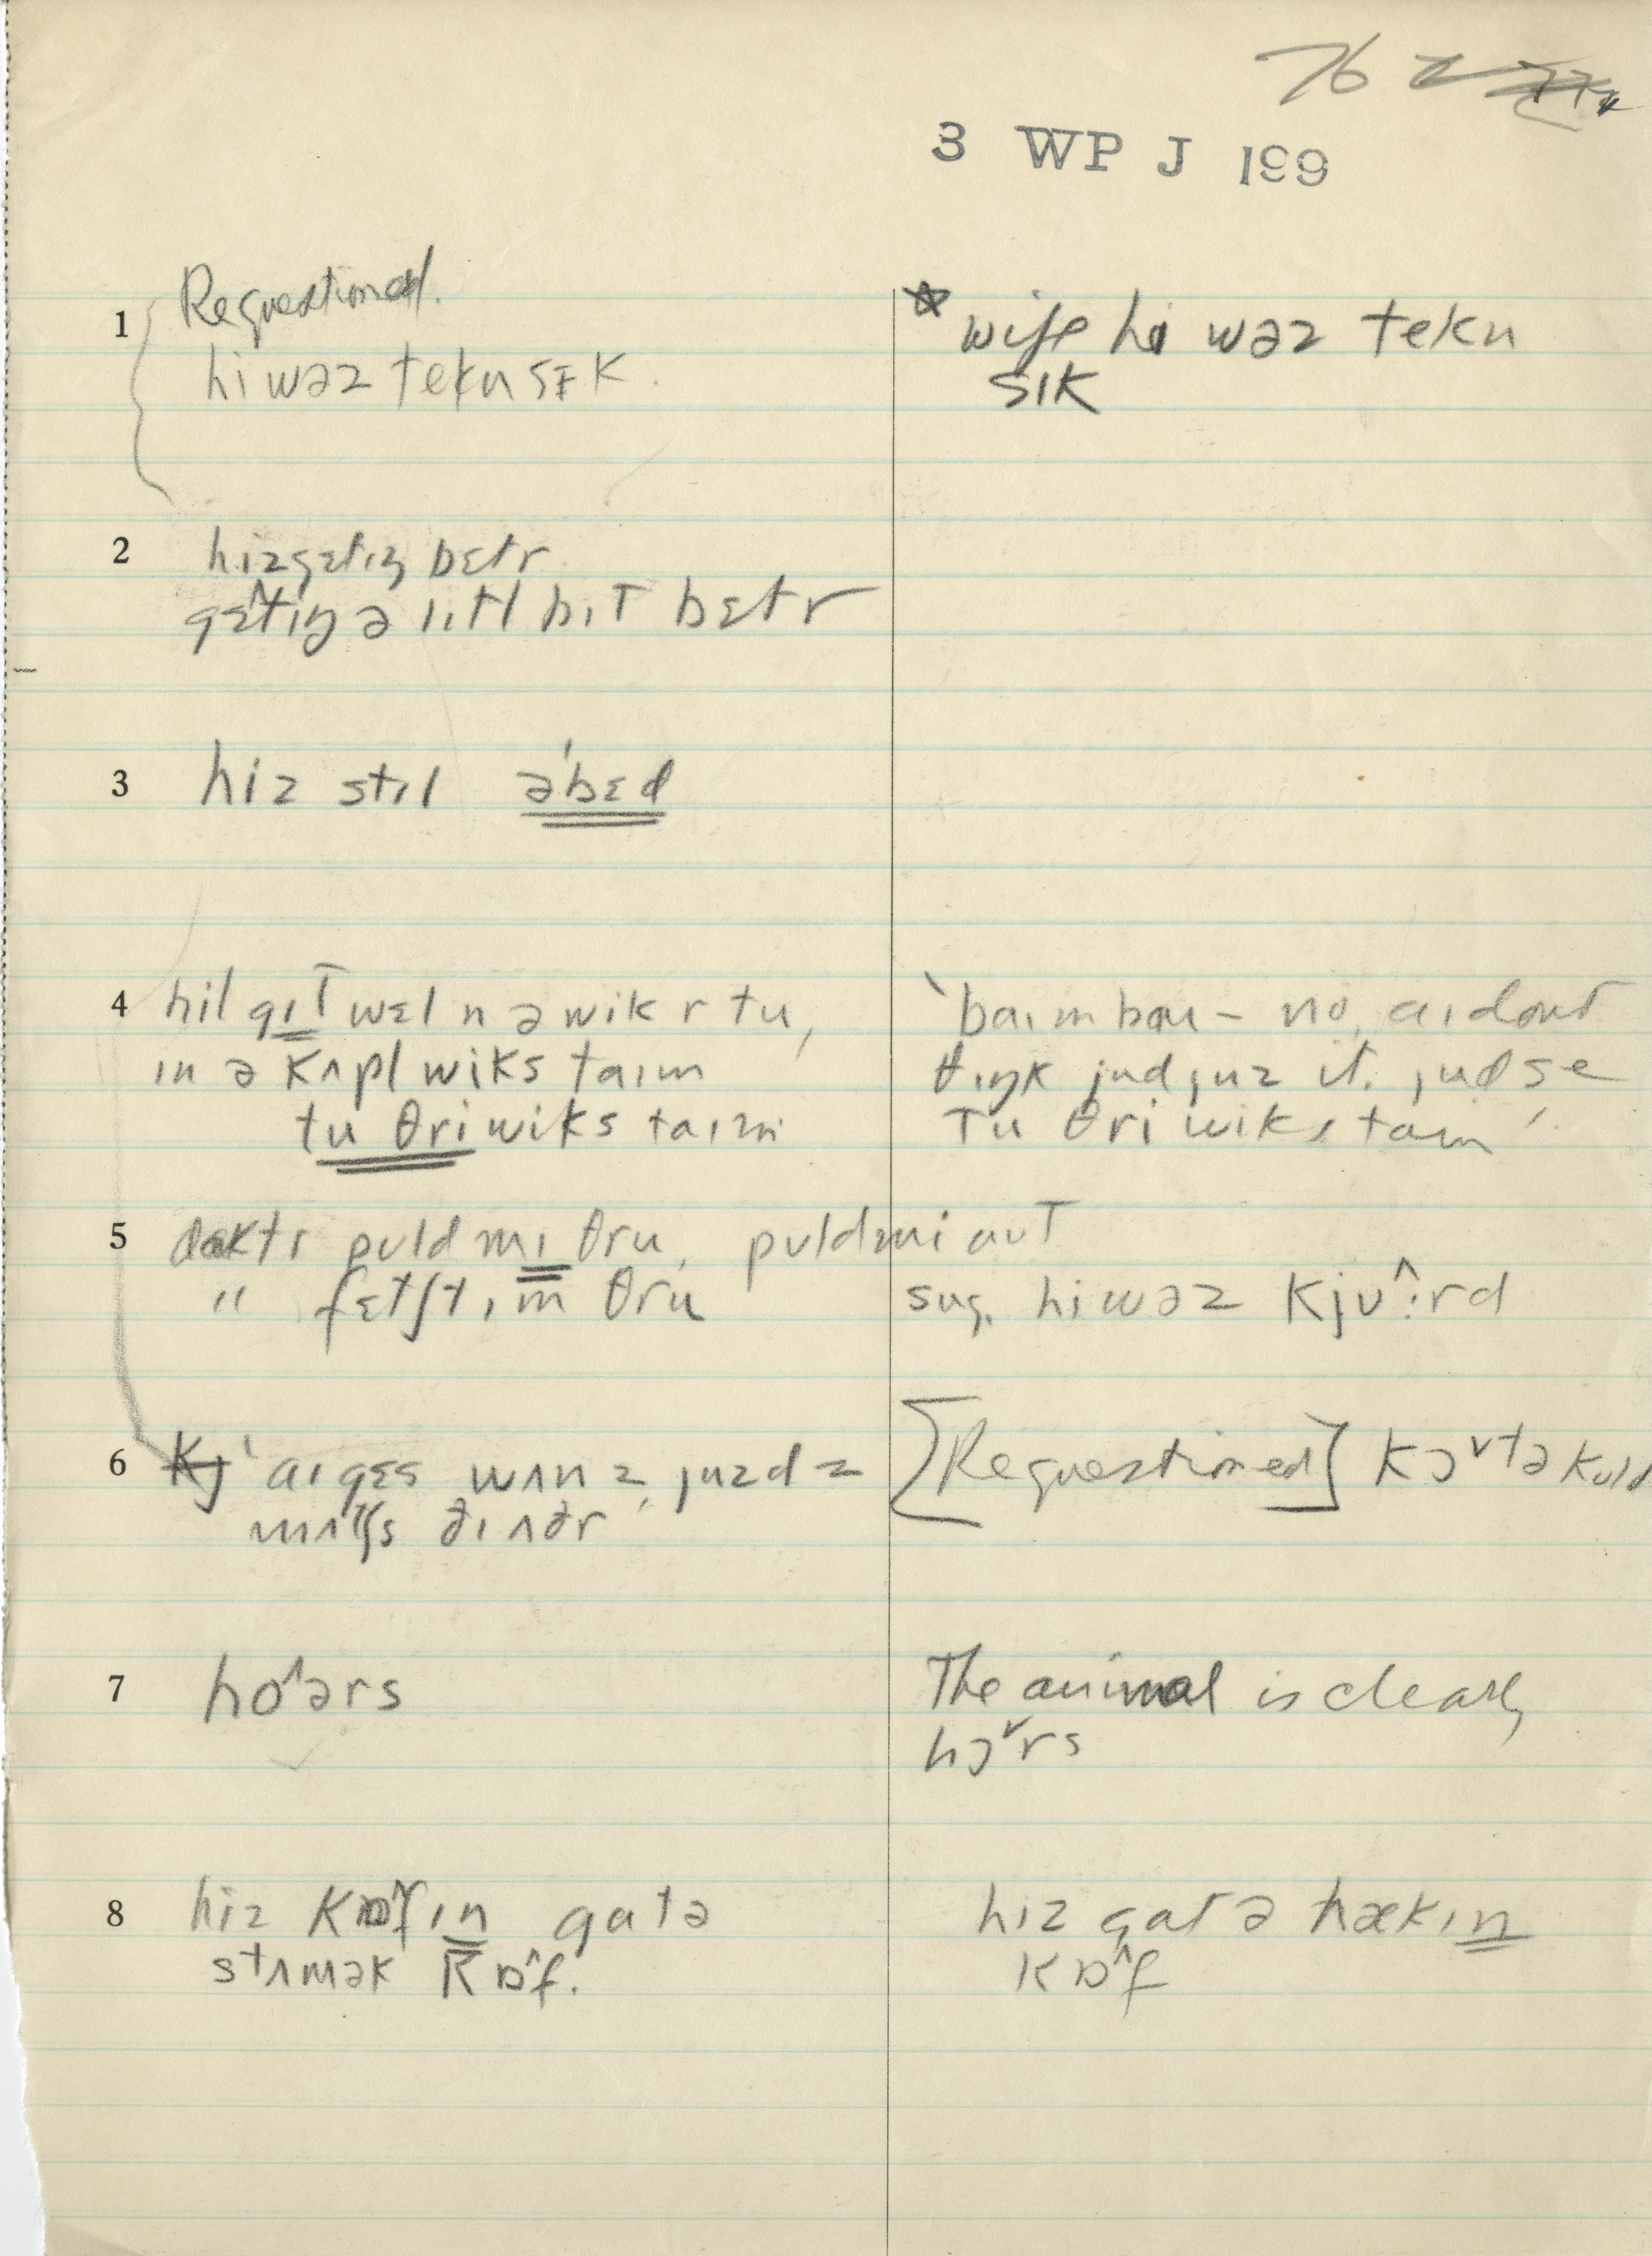 76 2
3 WP J 199
1 Requestioned.
hi wəz tekn sɪk.
* wife hi wəz tekn
sɪk
2 hiz gɛtɪŋ bɛtr
gɛ^tɪŋ ə lɪtl bɪt bɛtr
3 hiz stɪl ə'bɛd
4 hil gɪt wɛl n ə wik r tu,
ɪn ə kʌpl wiks taɪm
tu θri wiks taɪm
`baɪm baɪ – no, aɪ dont
θɪŋk jud juz it. jud se
tu θri wiks taɪm'.
5 daktr puld mɪ θru, puld mi aut
" fɛtʃt ɪm θru
sug. hi wəz kjʊ^:rd
6 'aɪ gɛs wʌnz juzd z
mʌtʃs ðɪ ʌðr'
[Requestioned] kɔ˅tə kuld
7 ho^ərs
The animal is clearly
hɔ˅rs
8 hiz kɒ^fɪn gat ə
stʌmək kɒ^f.
hiz gat ə hækɪn
kɒ^f